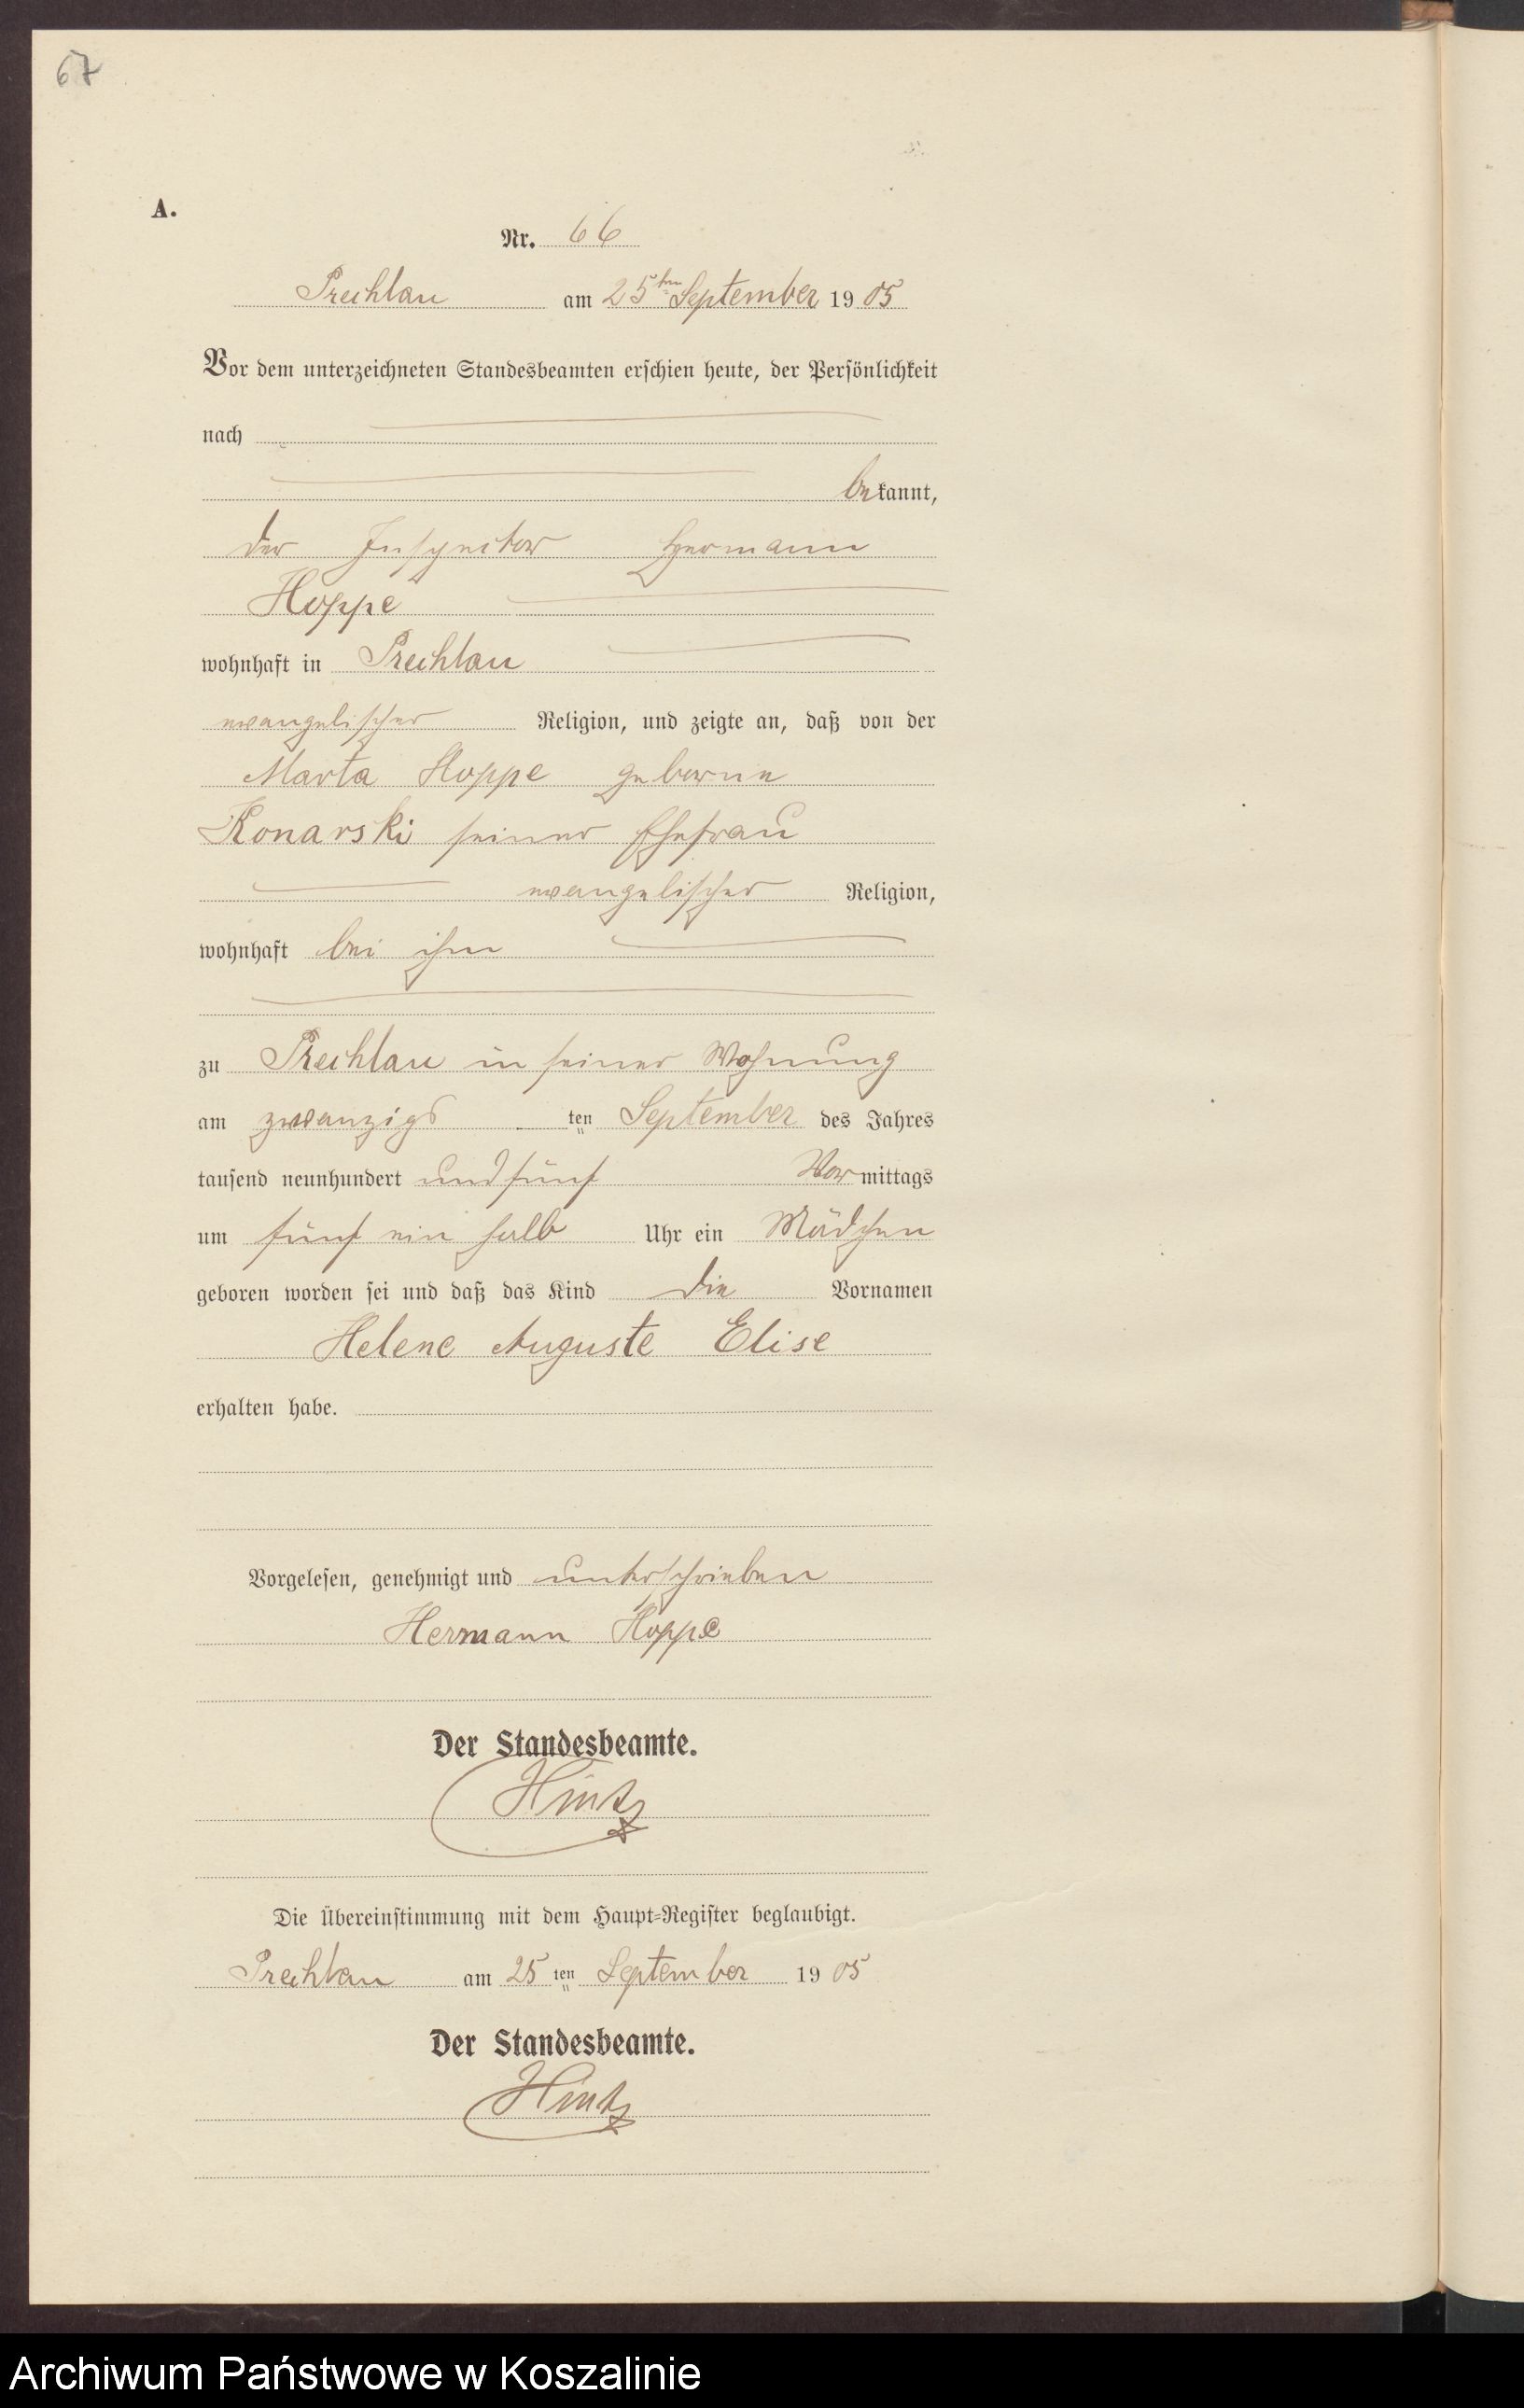 67
A.
Nr. 66
Prechlau am 25ten September 1905
Vor dem unterzeichneten Standesbeamten erschien heute, der Persönlichkeit
nach
bekannt,
der Inspektor Hermann
Hoppe
wohnhaft in Prechlau
evangelischer Religion, und zeigte an, daß von der
Marta Hoppe geborne
Konarski seiner Ehefrau
evangelischer Religion,
wohnhaft bei ihm
zu Prechlau in seiner Wohnung
am zwanzigs ten September des Jahres
tausend neunhundert und fünf Vormittags
um fünf ein halb Uhr ein Mädchen
geboren worden sei und daß das Kind die Vornamen
Helene Auguste Elise
erhalten habe.
Vorgelesen, genehmigt und unterschrieben
Hermann Hoppe
Der Standesbeamte.
Hintz
Die Übereinstimmung mit dem Haupt-Register beglaubigt.
Prechlau am 25 ten September 1905
Der Standesbeamte.
Hintz
Archiwum Państwowe w Koszalinie